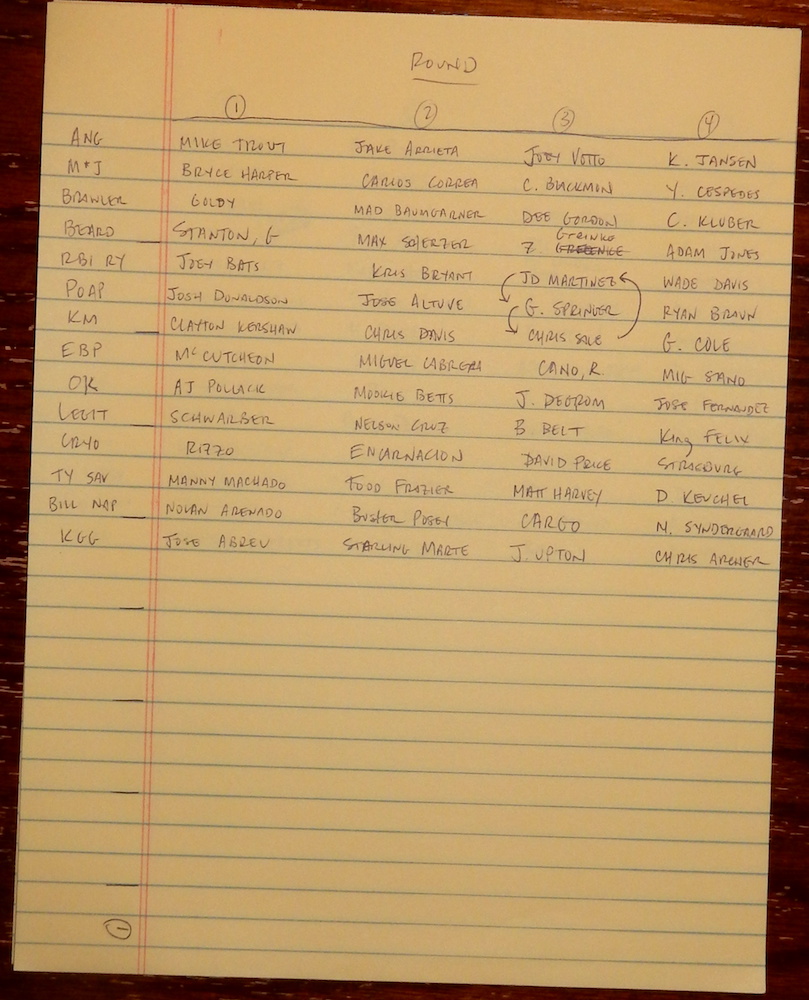 ROUND
1 2 3 4
ANG MIKE TROUT JAKE ARRIETA JOEY VOTTO K. JANSEN
M+J BRYCE HARPER CARLOS CORREA C. BLACKMON Y. CESPEDES
BRAWLER GOLDY MAD BAUMGARNER DEE GORDON C. KLUBER
BEARD STANTON, G MAX SCHERZER Z. GREINKE ADAM JONES
RBI RY JOEY BATS KRIS BRYANT JD MARTINEZ WADE DAVIS
POAP JOSH DONALDSON JOSE ALTUVE G. SPRINGER RYAN BRAUN
KM CLAYTON KERSHAW CHRIS DAVIS CHRIS SALE G. COLE
EBP McCUTCHEON MIGUEL CABRERA CANO, R. MIG SANO
OK AJ POLLACK MOOKIE BETTS J. DEGROM JOSE FERNANDEZ
LEGIT SCHWARBER NELSON CRUZ B. BELT King FELIX
CRYO RIZZO ENCARNACION DAVID PRICE STRASBURG
TY SAV MANNY MACHADO TODD FRAZIER MATT HARVEY D. KEUCHEL
BILL NAP NOLAN ARENADO BUSTER POSEY CARGO N. SYNDERGAARD
KGG JOSE ABREU STARLING MARTE J. UPTON CHRIS ARCHER
1